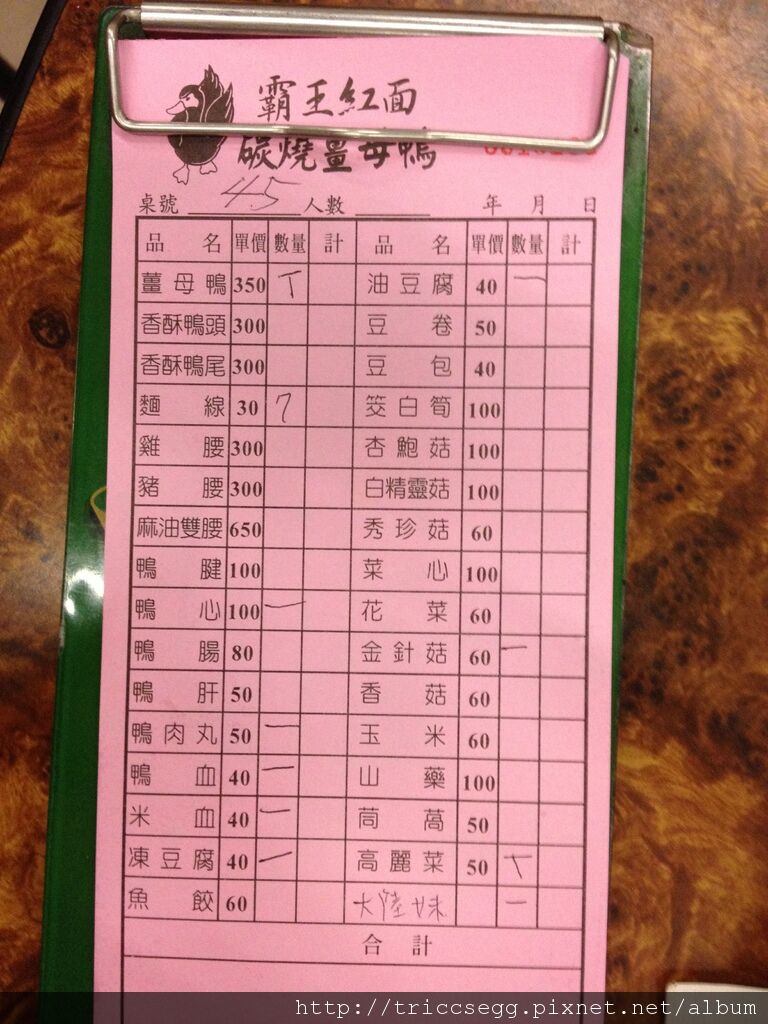 霸王紅面
碳燒薑母鴨
桌號 45 人數 年 月 日
品名 單價 數量 計 品名 單價 數量 計
薑母鴨 350 油豆腐 40 一
香酥鴨頭 300 豆卷 50
香酥鴨尾 300 豆包 40
麵線 30 豆白筍 100
雞腰 300 杏鮑菇 100
豬腰 300 白精靈菇 100
麻油雙腰 650 秀珍菇 60
鴨腱 100 菜心 100
鴨心 100 一 花菜 60
鴨腸 80 金針菇 60 一
鴨肝 50 香菇 60
鴨肉丸 50 一 玉米 60
鴨血 40 一 山藥 100
米血 40 一 茼萵 50
凍豆腐 40 一 高麗菜 50
魚餃 60 大陸妹 一
合計
http://triccsegg.pixnet.net/album